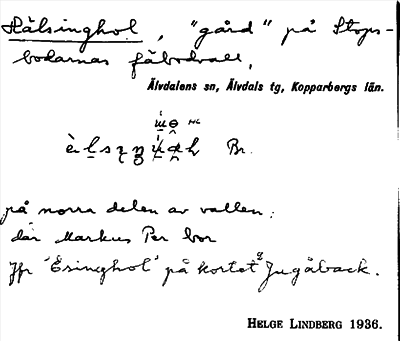 Hälsinghol, "gård" på Stops-
bodarnas fäbodvall,
Älvdalens sn, Älvdals tg, Kopparbergs län.
Br.
på norra delen av vallen;
där Markus Per bor
Jfr 'Esinghol' på kortet Jugåback.
HELGE LINDBERG 1936.